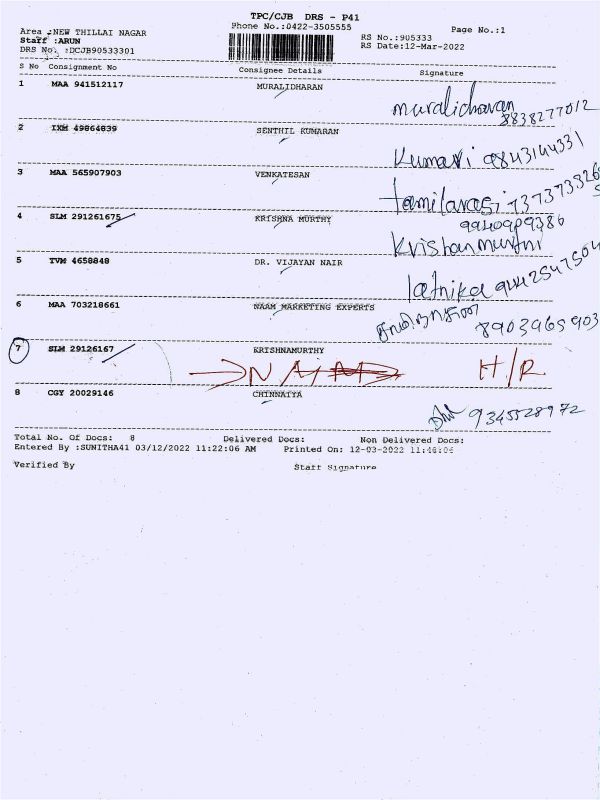 TPC/CJB DRS - P41
Phone No.:0422-3505555
Page No.:1
Area :NEW THILLAI NAGAR
Staff :ARUN
RS No.:905333
DRS No. :DCJB90533301
RS Date:12-Mar-2022
S No Consignment No Consignee Details Signature
1 MAA 941512117 MURALIDHARAN
muralidharan
8838277012
2 IXM 49864839 SENTHIL KUMARAN
Kumari 9843144331
3 MAA 565907903 VENKATESAN
Tamilarasi
4 SLM 291261675 KRISHNA MURTHY
9940909386
Krishanmurthi
5 TVM 4658848 DR. VIJAYAN NAIR
6 MAA 703218661 NAAM MARKETING EXPERTS
8903965903
7 SLM 29126167 KRISHNAMURTHY
H/R
8 CGY 20029146 CHINNAIYA
9345528972
Total No. Of Docs: 8 Delivered Docs: Non Delivered Docs:
Entered By :SUNITHA41 03/12/2022 11:22:06 AM Printed On: 12-03-2022 11:46:06
Verified By Staff Signature